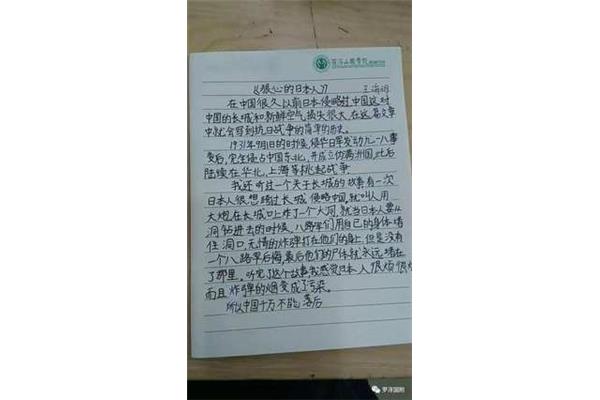 《狠心的日本人》
在中国很久以前日本侵略过中国这对
中国的长城和新鲜空气损失很大,在这篇文章
中就会写到抗日战争的简单的历史。
1931年9月18的时候,侵华日军发动九一八事
变后,完全侵占中国东北,并成立伪满洲国,此后
陆续在华北,上海等挑起战争
我还听过一个关于长城的故事有一次
日本人很想跨过长城侵略中国,就叫人用
大炮在长城口上炸了一个大洞,就当日本人要从
洞钻进去的时候,八路军们用自己的身体堵
住洞口,无情的炸弹打在他们的身上,但是没有
一个八路军后悔,最后他们的尸体就永远堵在
了那里。听完了这个故事,我感觉日本人很烦很烦
而且炸弹的烟变成了污染。
所以中国千万不能落后
罗浮国教